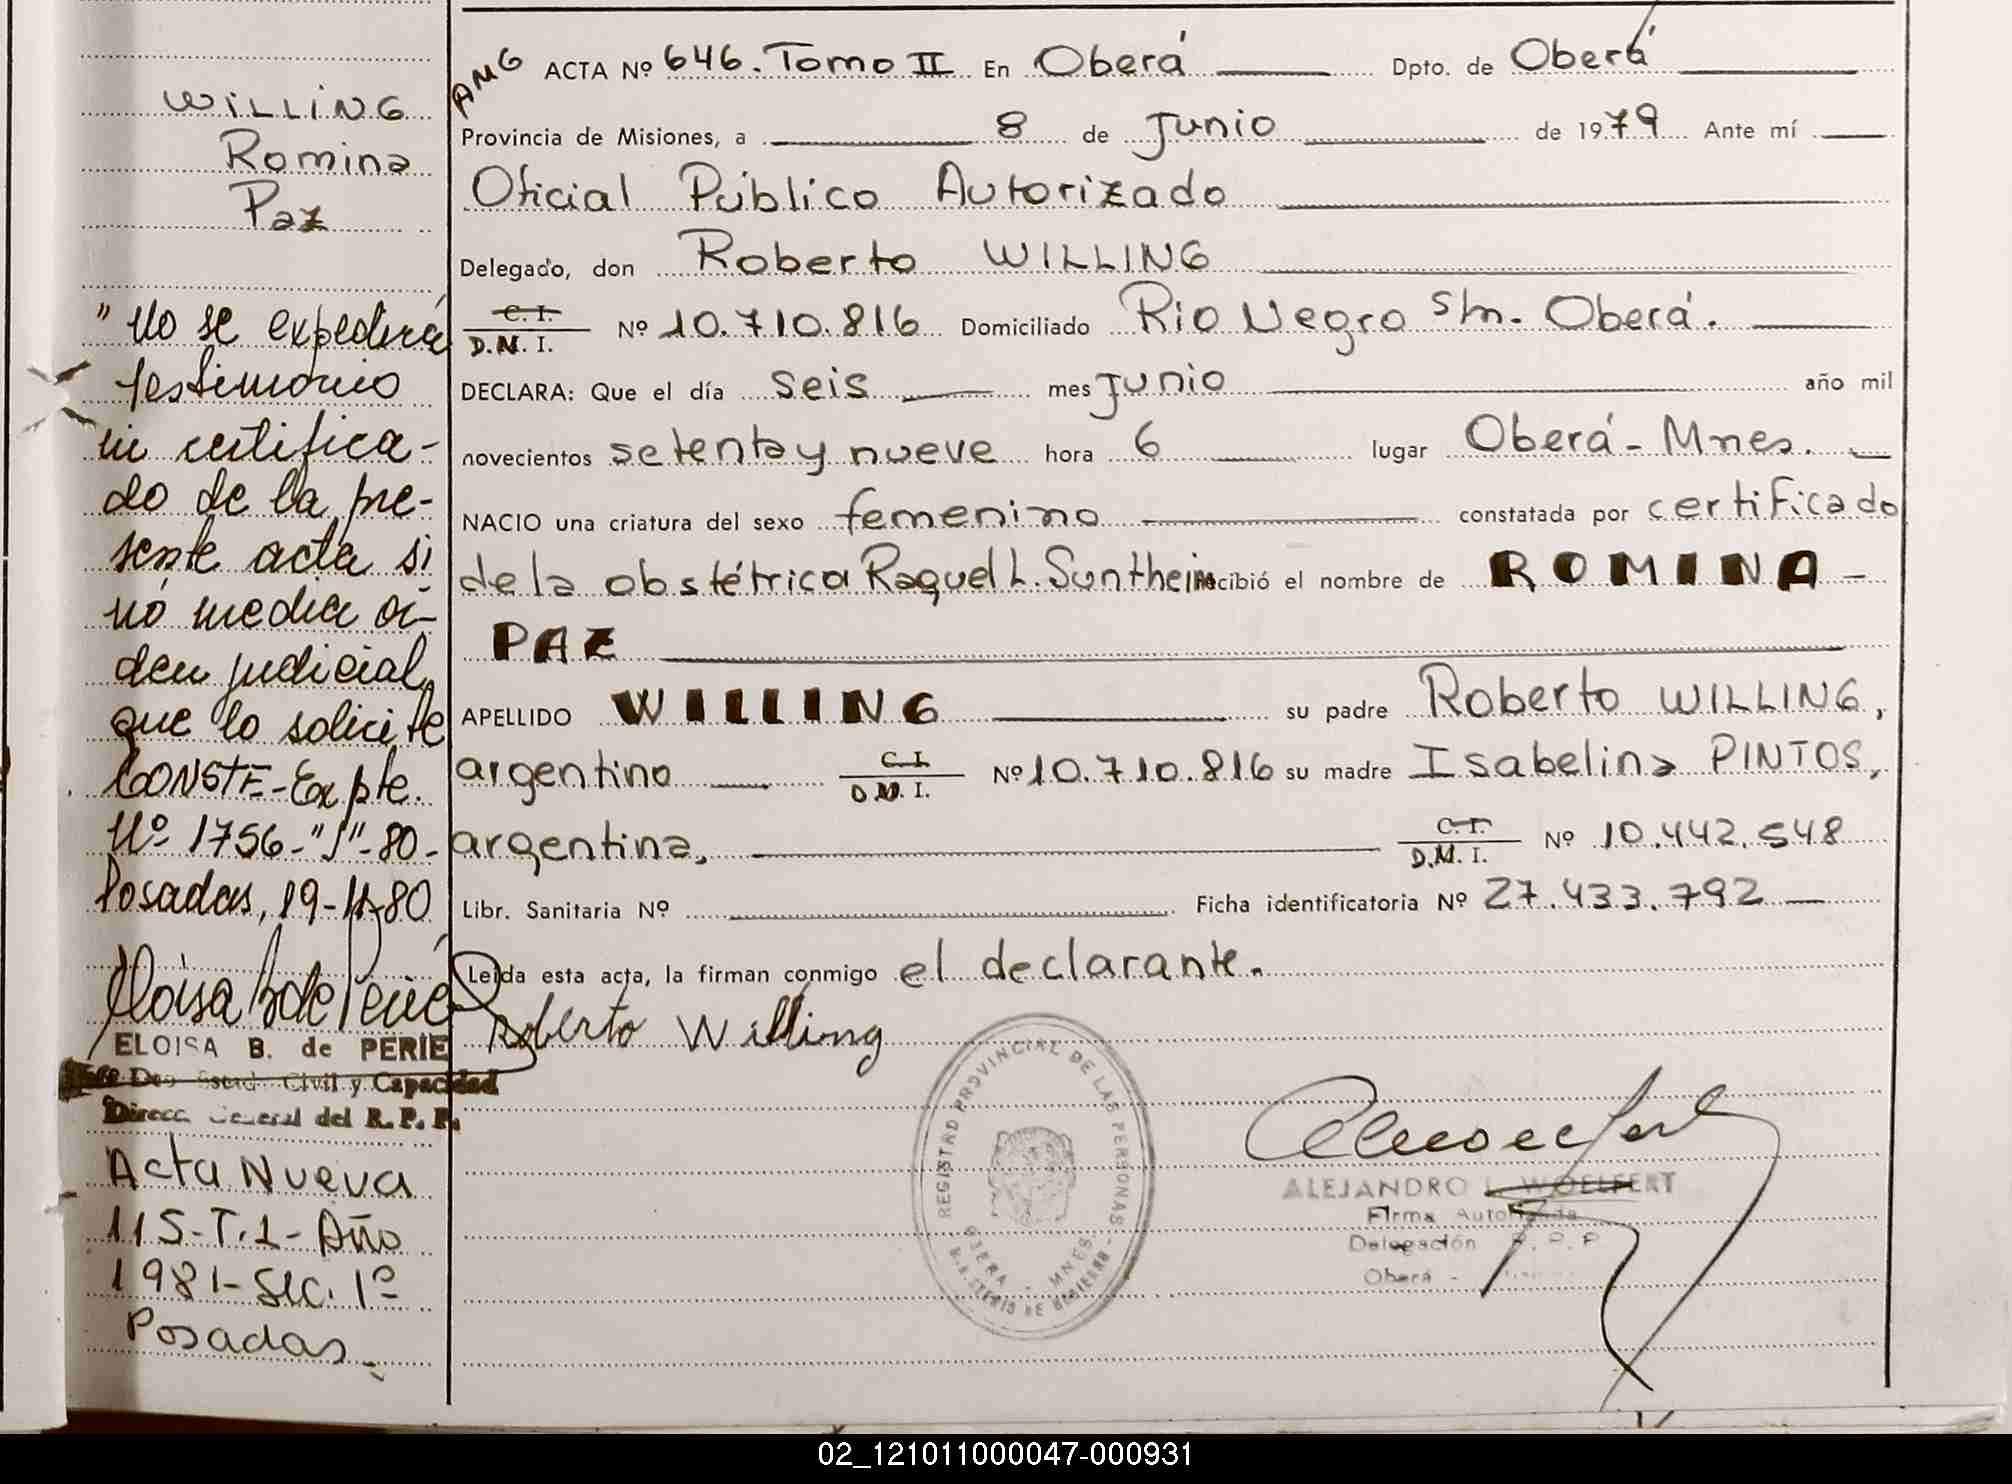 WILLING
Romina
Paz
"No se expedirá
testimonio
ni certifica-
do de la pre-
sente acta si
nó media or-
den judicial
que lo solicite
CONSTE-Expte.
Nº 1756-"S"-80-
Posadas, 19-11-80
ELOISA B. de PERIE
Civil y Capacidad
Direcc General del R. P. P.
Acta Nueva
115-T.1-Año
1981-Sec. 1º
Posadas.
AMG
ACTA Nº 646. Tomo II En Oberá Dpto. de Oberá
Provincia de Misiones, a 8 de Junio de 1979 Ante mí
Oficial Público Autorizado
Delegado, don Roberto WILLING
C. I.
D.N. I. Nº 10.710.816 Domiciliado Rio Negro s/n. Oberá.
DECLARA: Que el día seis mes Junio año mil
novecientos setenta y nueve hora 6 lugar Oberá-Mnes.
NACIO una criatura del sexo femenino constatada por certificado
de la obstétrica Raquel L. Suntheim recibió el nombre de ROMINA
PAZ
APELLIDO WILLING su padre Roberto WILLING,
argentino C I
D.N. I. Nº 10.710.816 su madre Isabelina PINTOS,
argentina, C. I.
D.N. I. Nº 10.442.548
Libr. Sanitaria Nº Ficha identificatoria Nº 27.433.792
Leída esta acta, la firman conmigo el declarante.
Roberto Willing
REGISTRO PROVINCIAL DE LAS PERSONAS
OBERA - MNES
ALEJANDRO L. WOELFERT
Firma Autorizada
Delegación R. P. P
Oberá -
02_121011000047-000931